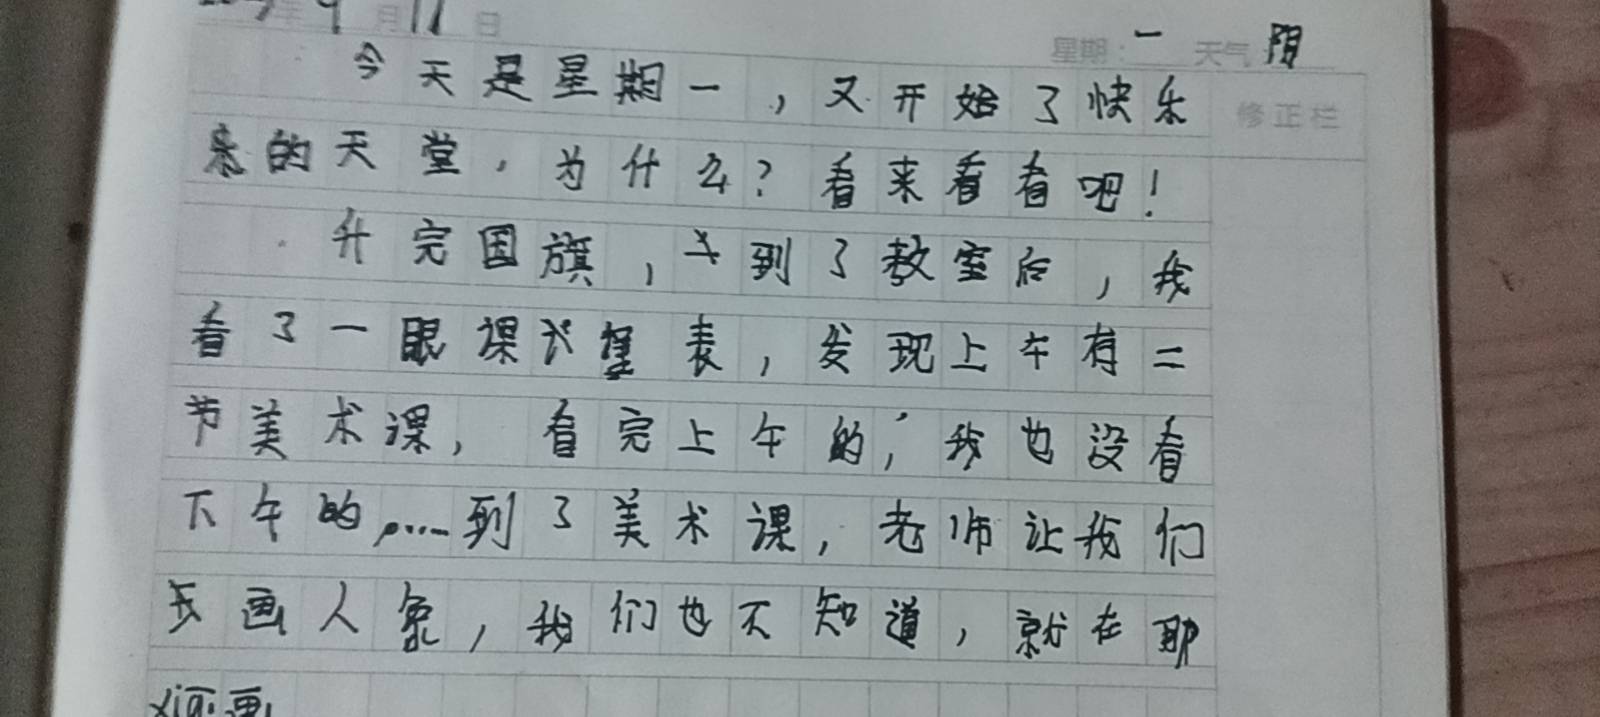 年 9 月 11 日 星期:一 天气 阴
今天是星期一,又开始了快乐
修正栏
来的天堂,为什么?看来看看吧!
升完国旗,到了教室后,我
看了一眼课表,发现上午有二
节美术课,看完上午的,我也没看
下午的,……到了美术课,老师让我们
画人象,我们也不知道,就在那
画